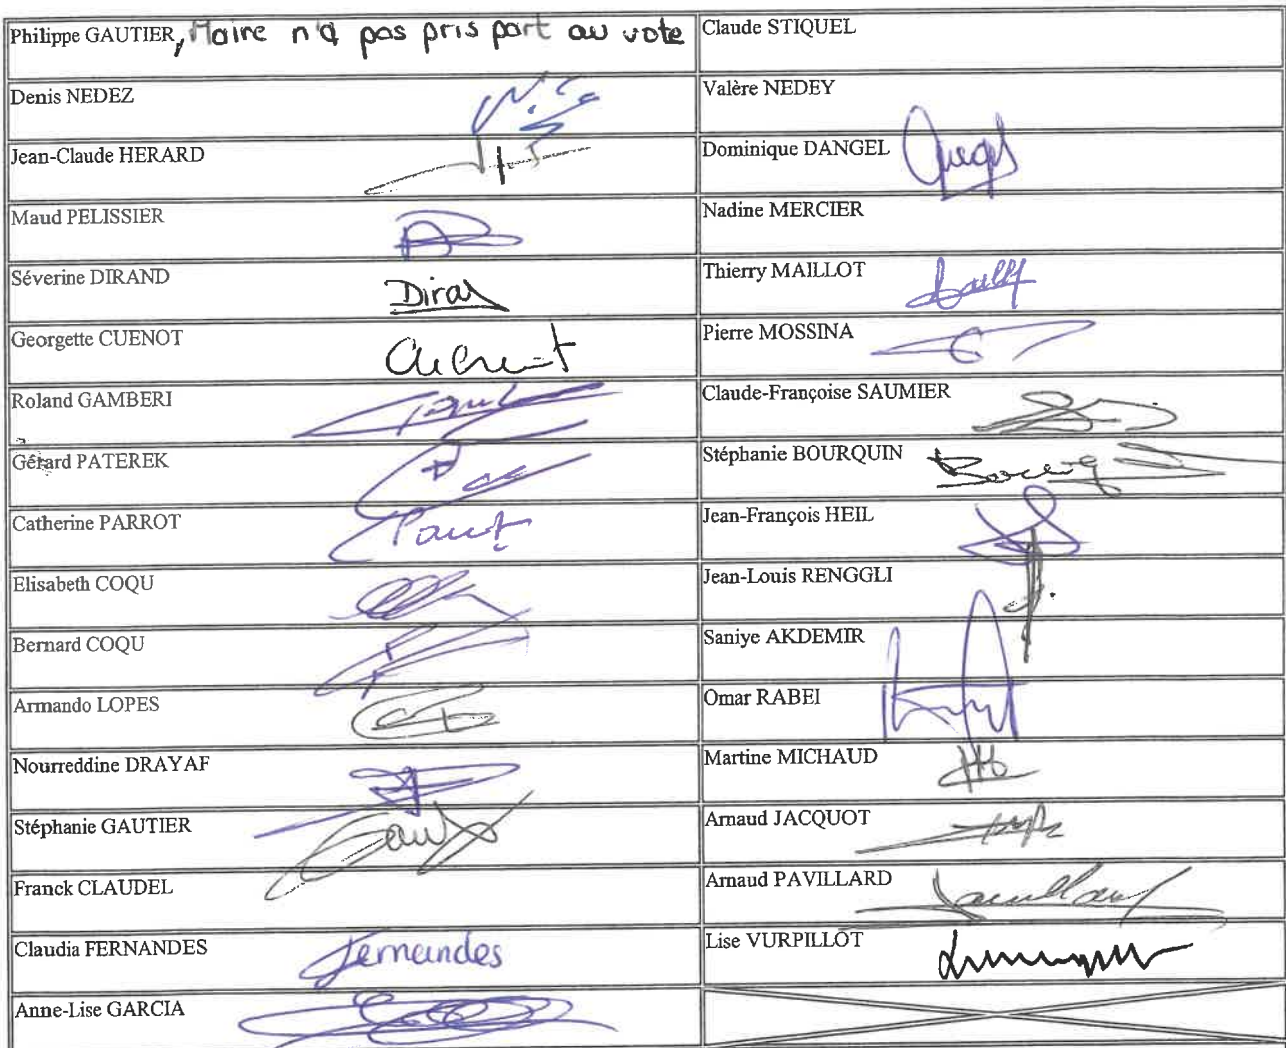 Philippe GAUTIER, Maire n'a pas pris part au vote
Claude STIQUEL
Denis NEDEZ
Valère NEDEY
Jean-Claude HERARD
Dominique DANGEL
Maud PELISSIER
Nadine MERCIER
Séverine DIRAND
Thierry MAILLOT
Georgette CUENOT
Pierre MOSSINA
Roland GAMBERI
Claude-Françoise SAUMIER
Gérard PATEREK
Stéphanie BOURQUIN
Catherine PARROT
Jean-François HEIL
Elisabeth COQU
Jean-Louis RENGGLI
Bernard COQU
Saniye AKDEMIR
Armando LOPES
Omar RABEI
Nourreddine DRAYAF
Martine MICHAUD
Stéphanie GAUTIER
Arnaud JACQUOT
Franck CLAUDEL
Arnaud PAVILLARD
Claudia FERNANDES Fernandes
Lise VURPILLOT
Anne-Lise GARCIA